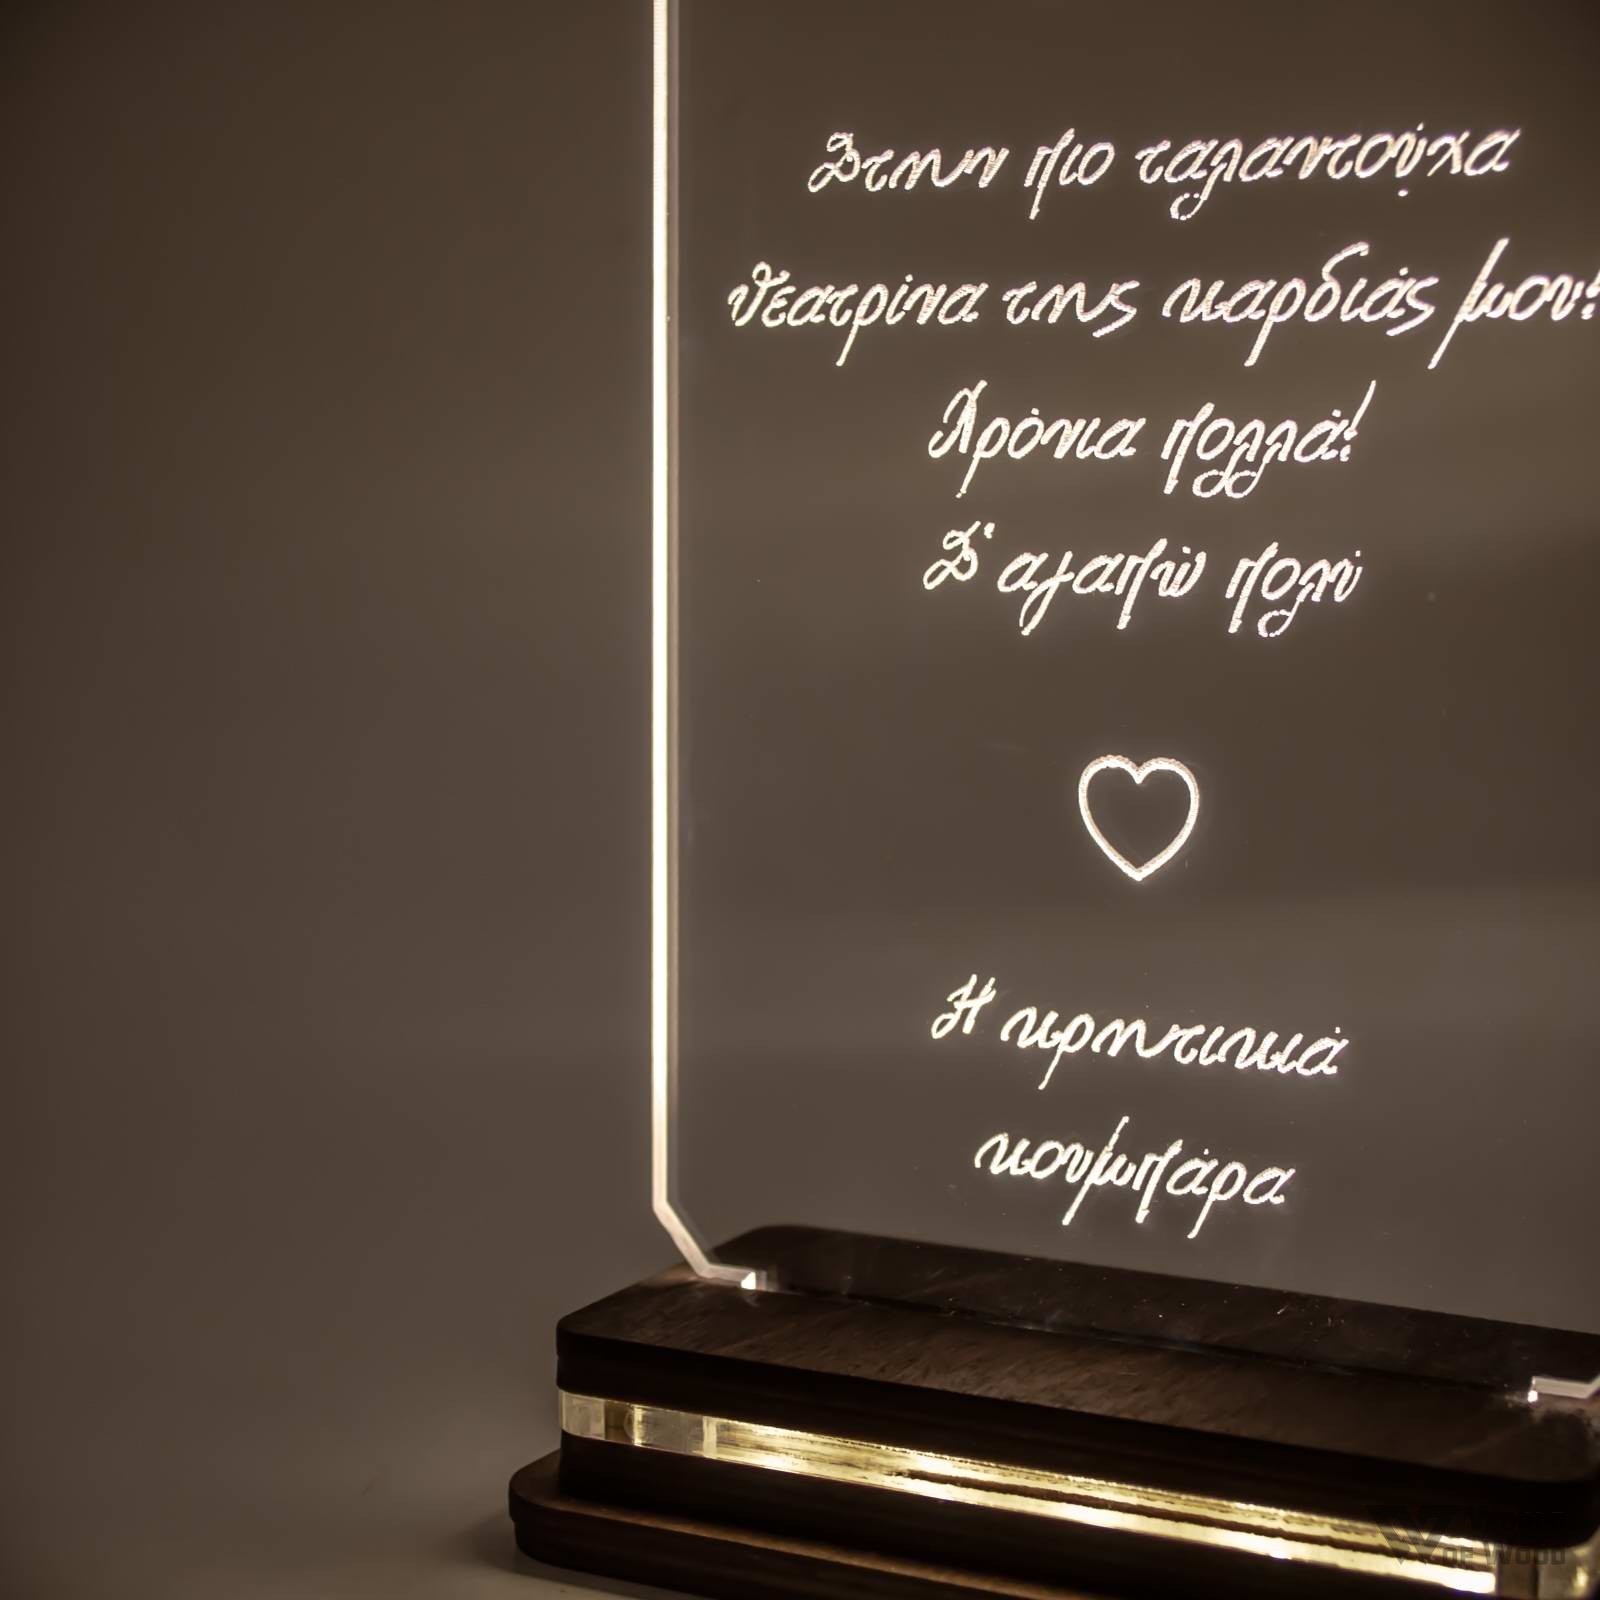 Στην πιο ταλαντούχα
θεατρίνα της καρδιάς μου!
Χρόνια πολλά!
Σ' αγαπώ πολύ
Η κρητικιά
κουμπάρα
de Wood